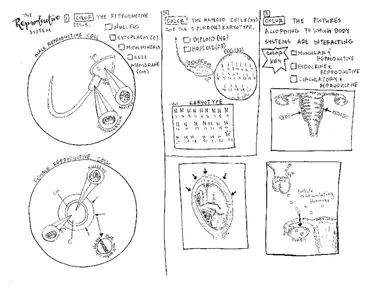 THE
Reproductive
SYSTEM
1 COLOR THE REPRODUCTIVE
CELLS.
NUCLEUS
CYTOPLASM (C)
MITOCHONDRIA
CELL
MEMBRANE
(CM)
MALE REPRODUCTIVE CELL
FEMALE REPRODUCTIVE CELL
COLOR THE HAPLOID CELLS (23)
AND THE DIPLOID (46) KARYOTYPE.
DIPLOID (46)
HAPLOID (23)
EGG (23)
KARYOTYPE
3
COLOR THE PICTURES
ACCORDING TO WHICH BODY
SYSTEMS ARE INTERACTING
COLOR
KEY
MUSCULAR &
REPRODUCTIVE
ENDOCRINE &
REPRODUCTIVE
CIRCULATORY &
REPRODUCTIVE
Follicle
Stimulating
Hormone
OVARY